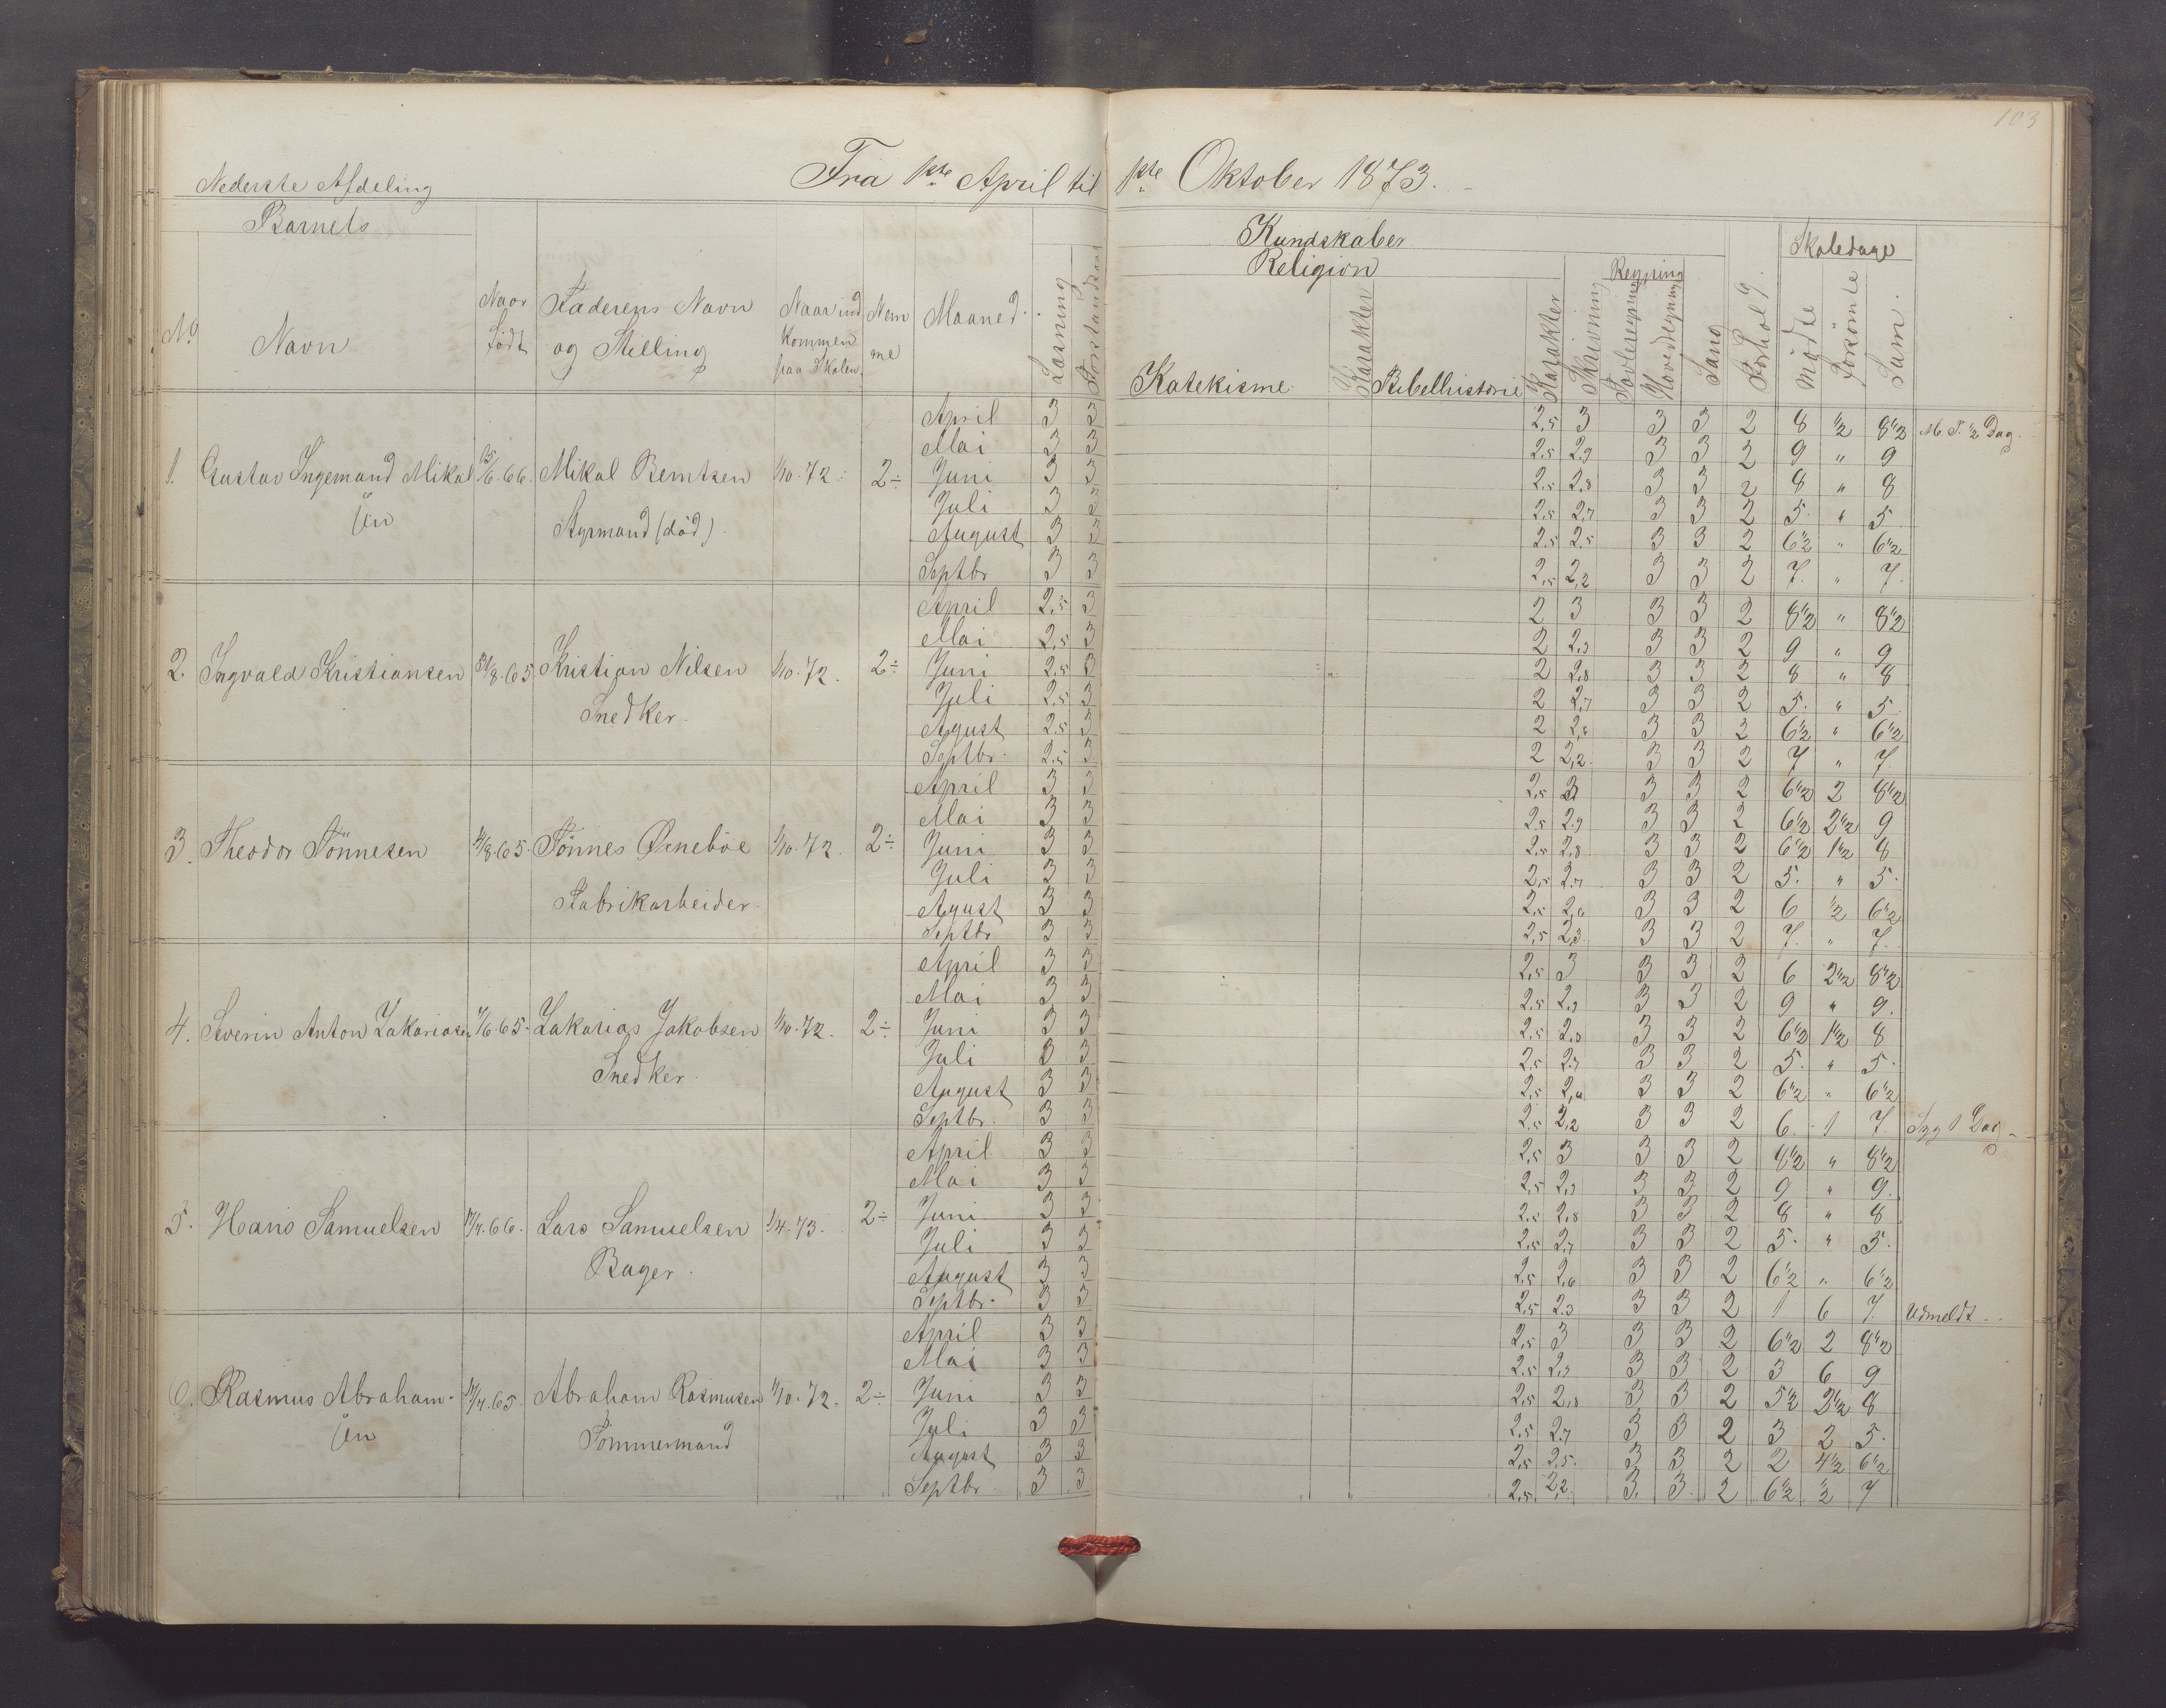 103
Nederste Afdeling
Fra 1ste April til 1ste Oktober 1873.
Barnets
Kundskaber
Skoledage
Religion
Regning
No
Navn
Naar født
Faderens Navn og Stilling
Naar ind kommen paa Skolen.
Nem me
Maaned.
Læsning
Forstandsøv
Katekisme
Karakter
Bibelhistorie
Karakter
Skrivning
Tavleregning
Hovedregning
Sang
Forhol
Mødte
Forsømte
Sum.
1. Gustav Ingemand Mikal 15/6.66. Mikal Berntsen 1/10.72. 2÷
sen
Styrmand (død)
April 3 3 2,5 3 3 3 2 8 1/2 8 1/2 M. T. 1/2 Dag
Mai 3 3 2,5 2,9 3 3 2 9 " 9
Juni 3 3 2,5 2,8 3 3 2 8 " 8
Juli 3 3 2,5 2,7 3 3 2 5. " 5
August 3 3 2,5 2,5 3 3 2 6 1/2 " 6 1/2
Septbr 3 3 2,5 2,2 3 3 2 7. " 7.
2. Ingvald Kristiansen /8.65 Kristian Nilsen 1/10.72. 2÷
Snedker.
April 2,5 3 2 3 3 3 2 8 1/2 " 8 1/2
Mai 2,5 3 2 2,9 3 3 2 9 " 9
Juni 2,5 3 2 2,8 3 3 2 8 " 8
Juli 2,5 3 2 2,7 3 3 2 5. " 5
Agust 2,5 3 2 3 3 2 6 1/2 " 6 1/2
Septbr. 2,5 3 2 2,2 3 3 2 7 " 7
3. Theodor Tönnesen /8.65. Tönnes Ørneböe 1/10.72. 2÷
Fabrikarbeider
April 3 3 2,5 3 3 3 2 6 1/2 2 8 1/2
Mai 3 3 2,5 2,9 3 3 2 6 1/2 2 1/2 9
Juni 3 3 2,5 2,8 3 3 2 6 1/2 1 1/2 8
Juli 3 3 2,5 2,7 3 3 2 5. " 5.
Agust 3 3 2,5 3 3 2 6 1/2 6 1/2
Septbr 3 3 2,5 2,3 3 3 2 7. " 7.
4. Severin Anton Zakariasen /6.65. Zakarias Jakobsen 1/10.72. 2÷
Snedker.
April 3 3 2,5 3 3 3 2 6 2 1/2 8 1/2
Mai 3 3 2,5 2,9 3 3 2 9 " 9.
Juni 3 3 2,5 2,8 3 3 2 6 1/2 1 1/2 8
Juli 3 3 2,5 2,7 3 3 2 5. " 5.
August 3 3 2,5 3 3 2 6 1/2 " 6 1/2
Septbr. 3 3 2,5 2,2 3 3 2 6. 1 7. Syg 1 Dag
5. Hans Samuelsen /4.66. Lars Samuelsen 1/4.73. 2÷
Bager.
April 3 3 2,5 3 3 3 2 8 1/2 " 8 1/2
Mai 3 3 2,5 2,9 3 3 2 9 " 9.
Juni 3 3 2,5 2,8 3 3 2 8 " 8
Juli 3 3 2,5 2,7 3 3 2 5. " 5.
August 3 3 2,5 2,6 3 3 2 6 1/2 " 6 1/2
Septbr. 3 3 2,5 2,3 3 3 2 1 6 7. Udmeldt
6. Rasmus Abraham- /4.65. Abraham Rasmusen 1/10.72. 2÷
sen
Tömmermand
April 3 3 2,5 3 3 3 2 6 1/2 2 8 1/2
Mai 3 3 2,5 2,9 3 3 2 3 6 9
Juni 3 3 2,5 2,8 3 3 2 5 1/2 2 1/2 8
Juli 3 3 2,5 2,7 3 3 2 3 2 5.
August 3 3 2,5 2,5. 3 3 2 2 4 1/2 6 1/2
Septbr. 3 3 2,5 2,2 3. 3 2 6 1/2 1/2 7